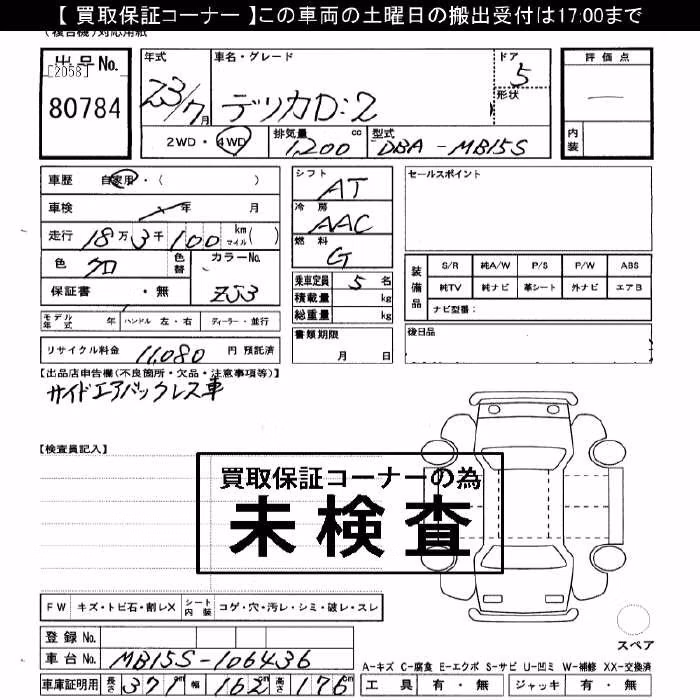 【 買取保証コーナー 】この車両の土曜日の搬出受付は17:00まで
(複合機)対応用紙
出品No.
[2058]
80784
年式
Z3/7月
車名・グレード
デリカD:2
ドア
5
形状
評価点
内装
2WD・4WD
排気量
1,200 cc
型式
DBA-MB15S
車歴 自家用・( )
車検 年 月
走行 18万3千100 km マイル( )
色 クロ
色替
カラーNo.
ZJ3
保証書 ・無
モデル年式 年 ハンドル 左・右 ディーラー・並行
リサイクル料金 11,080 円 預託済
シフト
AT
冷房
AAC
燃料
G
乗車定員 5 名
積載量 kg
総重量 kg
書類期限
月 日
セールスポイント
装備品
S/R 純A/W P/S P/W ABS
純TV 純ナビ 革シート 外ナビ エアB
ナビ型番:
後日品
【出品店申告欄(不良箇所・欠品・注意事項等)】
サイドエアバックレス車
【検査員記入】
買取保証コーナーの為
未検査
FW キズ・トビ石・割レX シート内装 コゲ・穴・汚レ・シミ・破レ・スレ
登録No.
車台No. MB15S-106436
車庫証明用 長さ 371cm 幅 162cm 高さ 176cm
スペア
A-キズ C-腐食 E-エクボ S-サビ U-凹ミ W-補修 XX-交換済
工具 有・無 ジャッキ 有・無